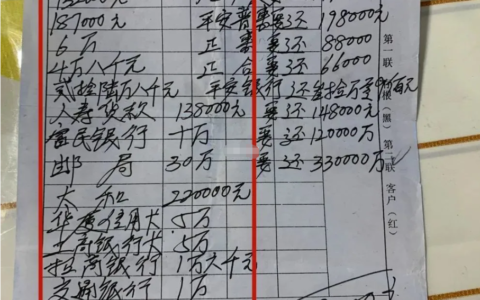 187000元 平安普惠要还198000元
6万 正 要还88000
4万八千元 正合要还66000
贰拾陆万八千元 平安银行
人寿贷款 138000元要还148000元
富民银行 十万 要还120000万
邮局 30万 要还330000万
太和 220000元
华夏信用卡 5万
工商银行卡 5万
拉商银行 1万六千元
交通银行 1万
第一联 存根（黑） 第二联 客户（红）